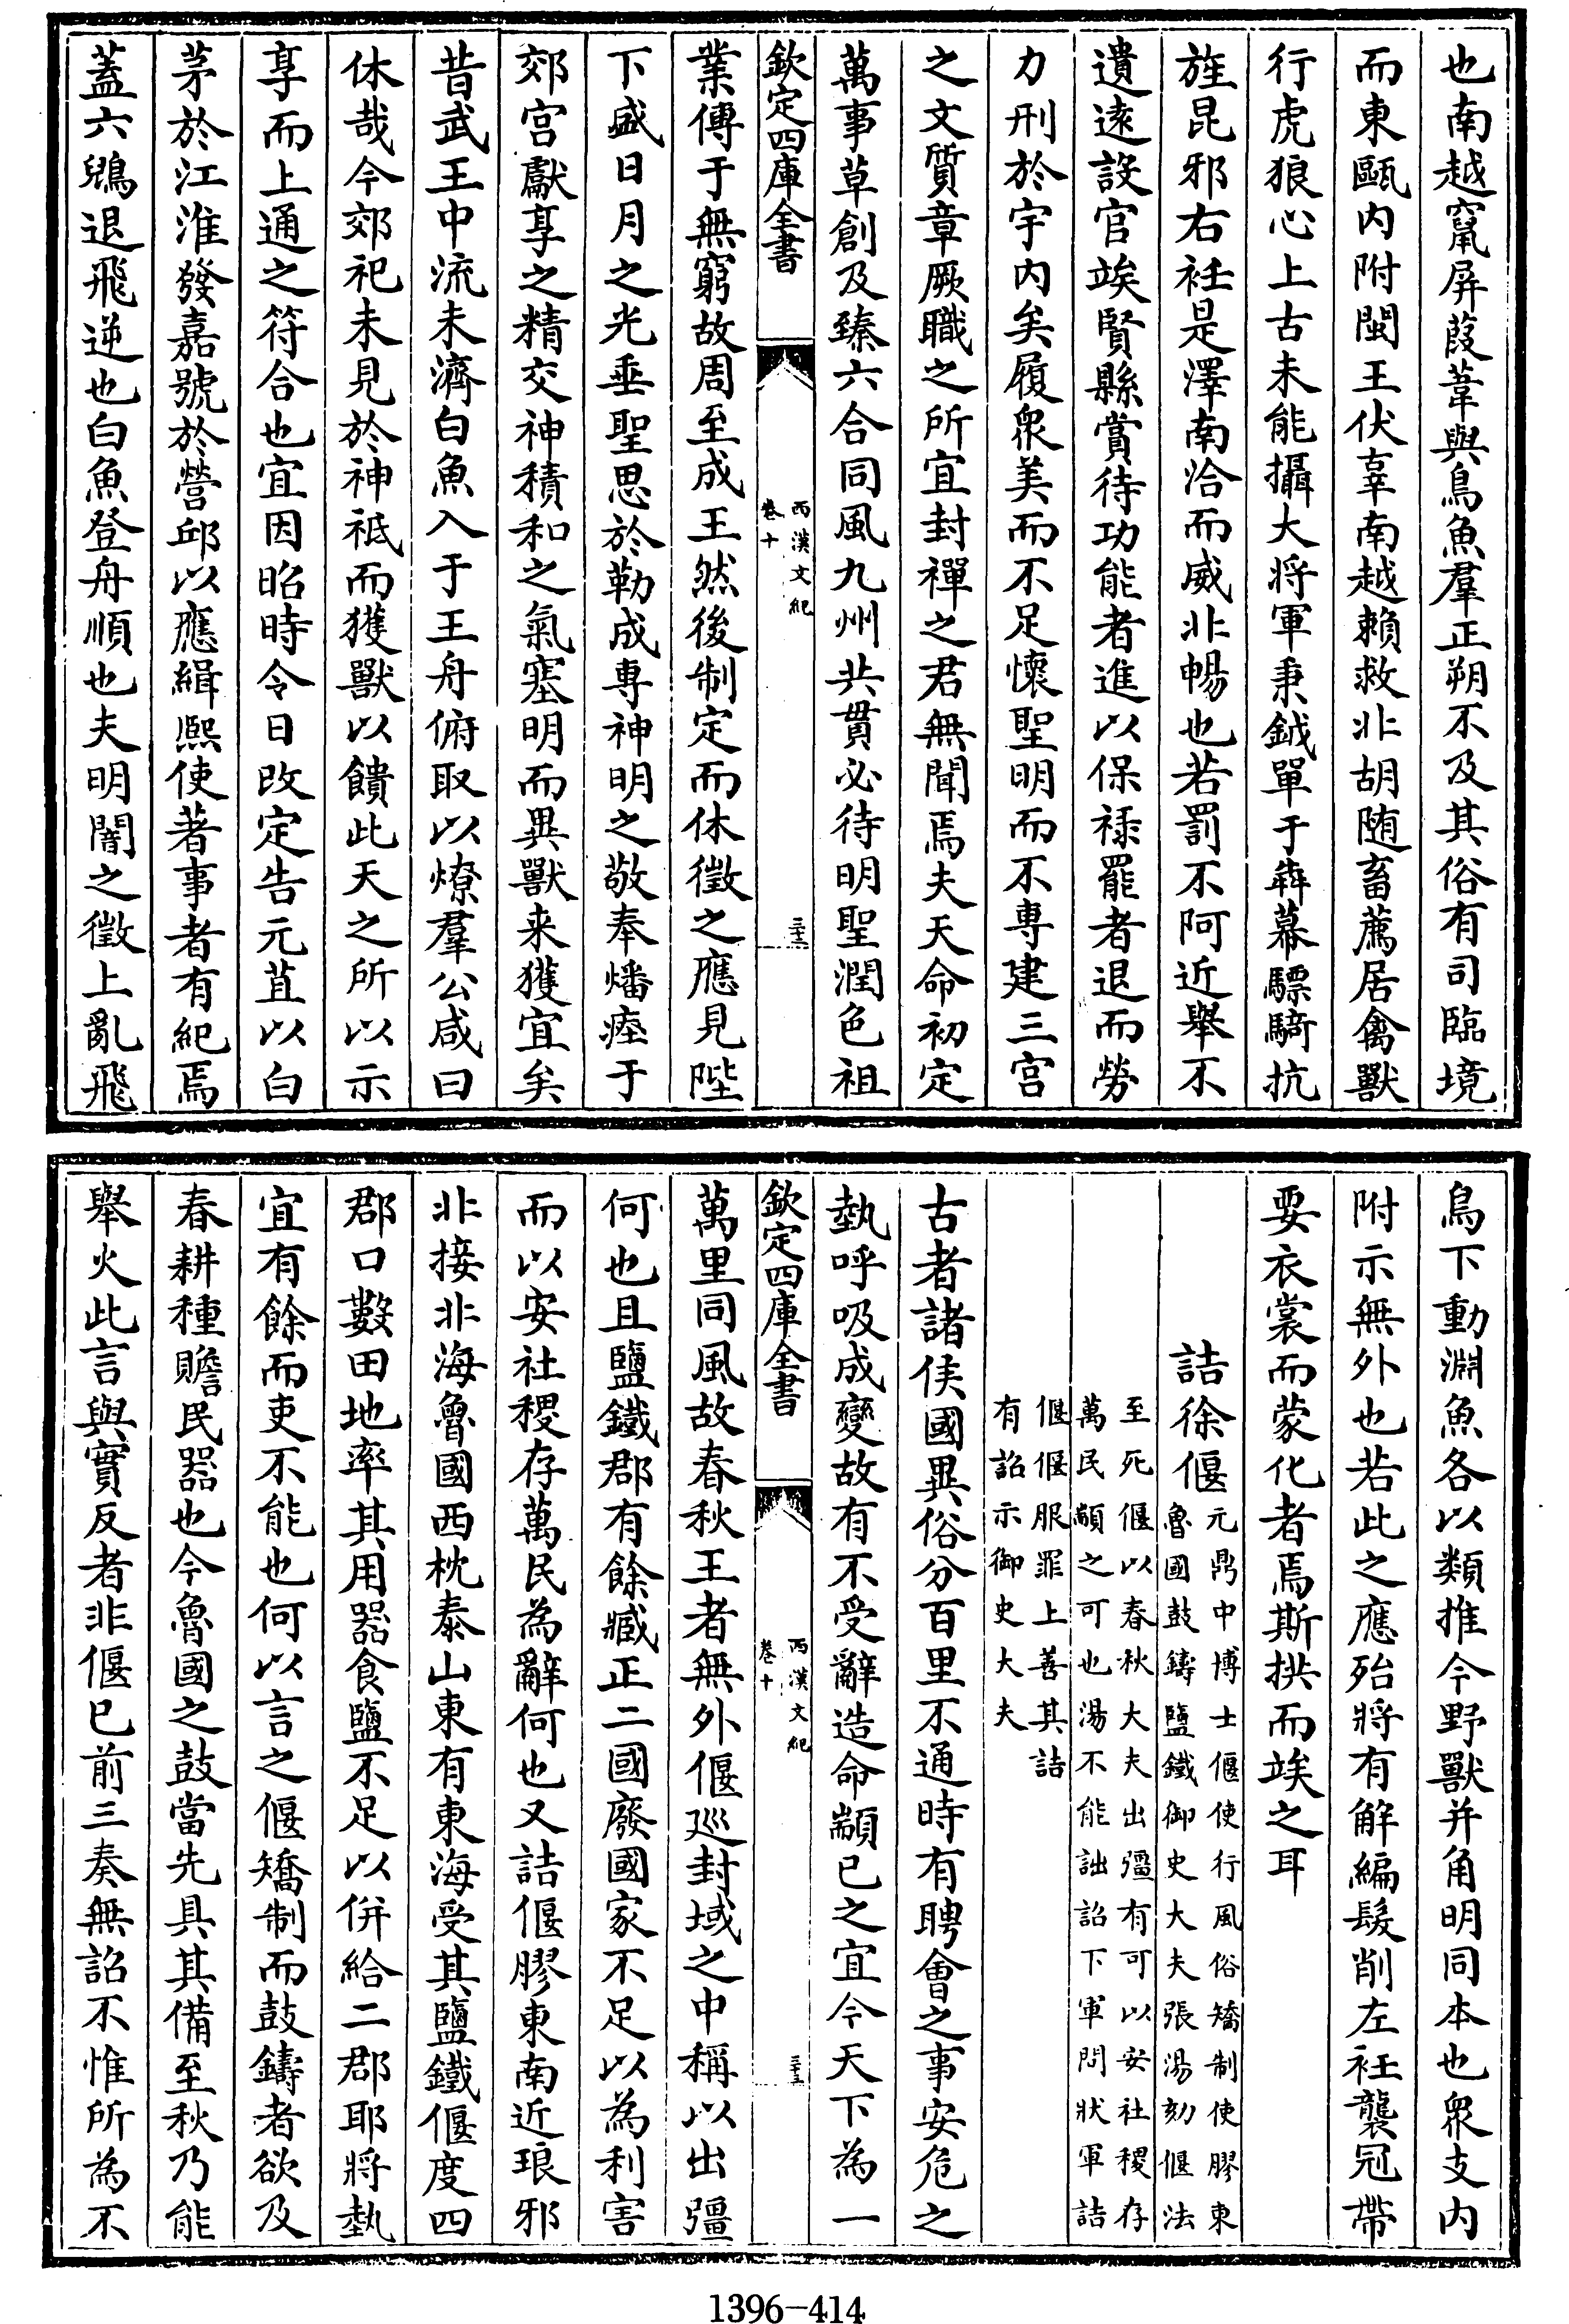 也南越竄屏葭葦與鳥魚羣正朔不及其俗有司臨境
而東甌內附閩王伏辜南越賴救北胡随畜薦居禽獸
行虎狼心上古未能攝大將軍秉鉞單于犇幕驃騎抗
旌昆邪右衽是澤南洽而威北暢也若罰不阿近舉不
遺逺設官竢賢縣賞待功能者進以保禄罷者退而勞
力刑於宇内矣履衆美而不足懐聖明而不専建三宫
之文質章厥職之所宜封禪之君無聞焉夫天命初定
萬事草創及臻六合同風九州共貫必待明聖潤色祖
欽定四庫全書
西漢文紀
卷十
三十三
業傳于無窮故周至成王然後制定而休徴之應見陛
下盛日月之光垂聖思於勒成専神明之敬奉燔瘞于
郊宫獻享之精交神積和之氣塞明而異獸来獲宜矣
昔武王中流未濟白魚入于王舟俯取以燎羣公咸曰
休哉今郊祀未見於神祇而獲獸以饋此天之所以示
享而上通之符合也宜因昭時令日改定告元苴以白
茅於江淮發嘉號於營邱以應緝熙使著事者有紀焉
蓋六鶂退飛逆也白魚登舟順也夫明闇之徴上亂飛
鳥下動淵魚各以類推今野獸并角明同本也衆支内
附示無外也若此之應殆將有解編髪削左衽襲冠帶
要衣裳而蒙化者焉斯拱而竢之耳
詰徐偃
元鼎中博士偃使行風俗矯制使膠東
魯國鼓鑄鹽鐵御史大夫張湯劾偃法
至死偃以春秋大夫出彊有可以安社稷存
萬民顓之可也湯不能詘詔下軍問狀軍詰
偃偃服罪上善其詰
有詔示御史大夫
古者諸侯國異俗分百里不通時有聘會之事安危之
埶呼吸成變故有不受辭造命顓已之宜今天下為一
欽定四庫全書
西漢文紀
卷十
三十三
萬里同風故春秋王者無外偃巡封域之中稱以出彊
何也且鹽鐵郡有餘臧正二國廢國家不足以為利害
而以安社稷存萬民為辭何也又詰偃膠東南近琅邪
北接北海魯國西枕泰山東有東海受其鹽鐵偃度四
郡口數田地率其用器食鹽不足以併給二郡耶將埶
宜有餘而吏不能也何以言之偃矯制而鼓鑄者欲及
春耕種贍民器也今魯國之鼓當先具其備至秋乃能
舉火此言與實反者非偃已前三奏無詔不惟所為不
1396-414